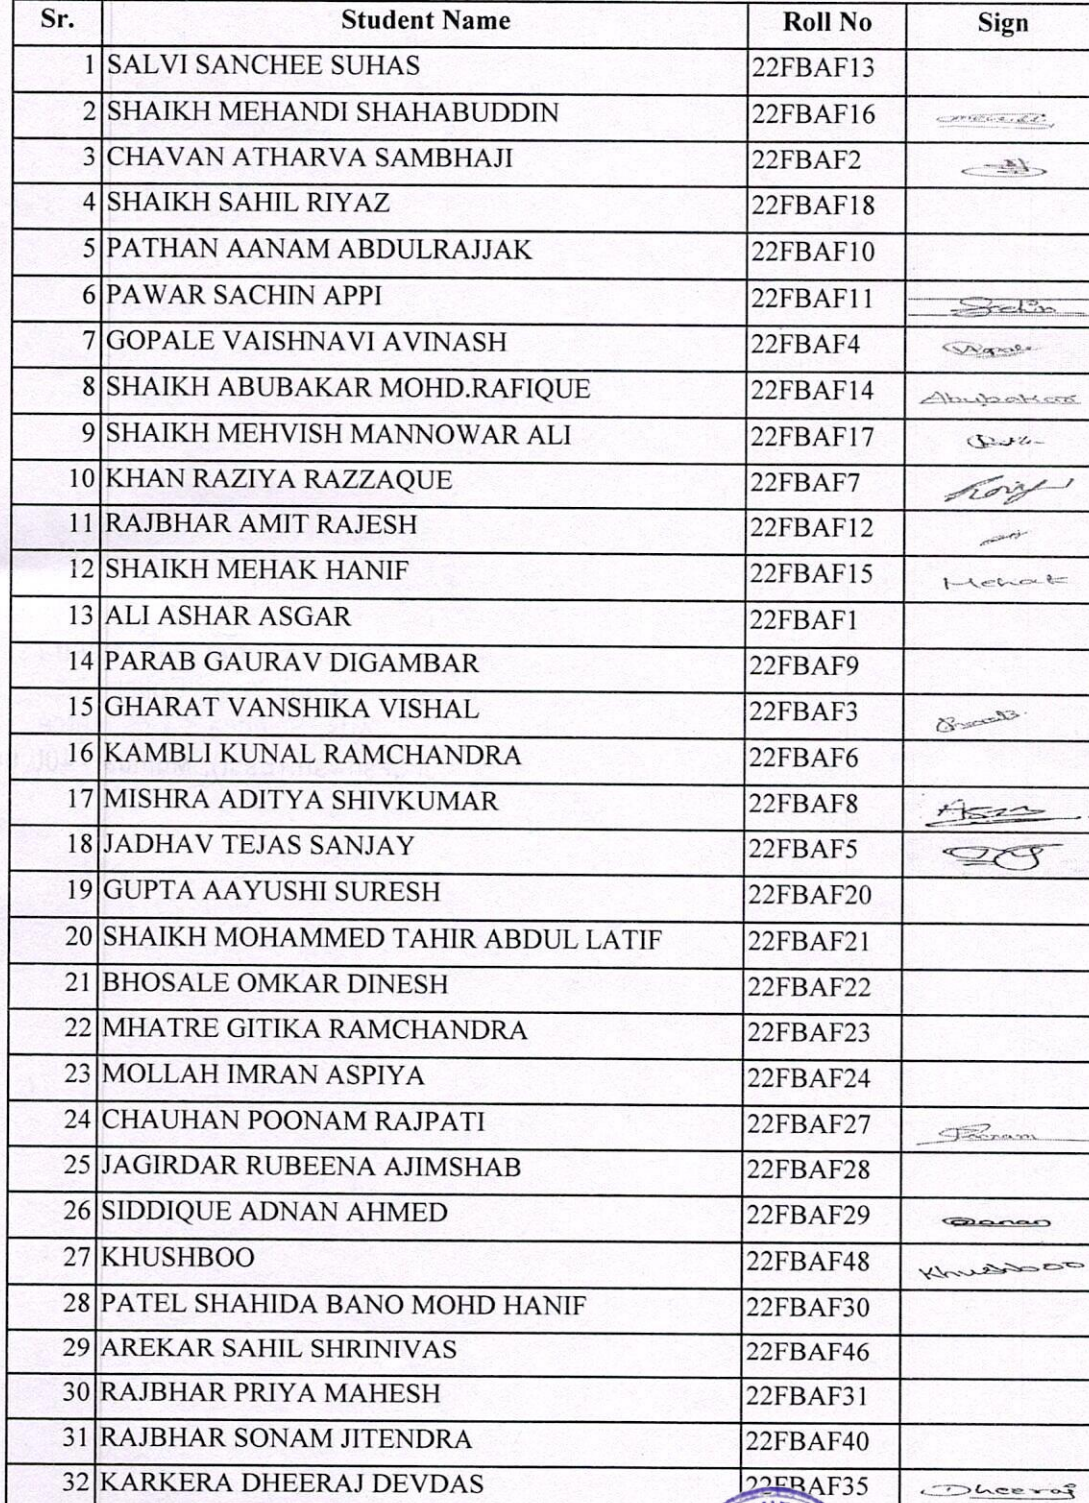 Sr. Student Name Roll No Sign
1 SALVI SANCHEE SUHAS 22FBAF13
2 SHAIKH MEHANDI SHAHABUDDIN 22FBAF16
3 CHAVAN ATHARVA SAMBHAJI 22FBAF2
4 SHAIKH SAHIL RIYAZ 22FBAF18
5 PATHAN AANAM ABDULRAJJAK 22FBAF10
6 PAWAR SACHIN APPI 22FBAF11 Sachin
7 GOPALE VAISHNAVI AVINASH 22FBAF4
8 SHAIKH ABUBAKAR MOHD.RAFIQUE 22FBAF14 Abubakar
9 SHAIKH MEHVISH MANNOWAR ALI 22FBAF17
10 KHAN RAZIYA RAZZAQUE 22FBAF7
11 RAJBHAR AMIT RAJESH 22FBAF12
12 SHAIKH MEHAK HANIF 22FBAF15 Mehak
13 ALI ASHAR ASGAR 22FBAF1
14 PARAB GAURAV DIGAMBAR 22FBAF9
15 GHARAT VANSHIKA VISHAL 22FBAF3
16 KAMBLI KUNAL RAMCHANDRA 22FBAF6
17 MISHRA ADITYA SHIVKUMAR 22FBAF8
18 JADHAV TEJAS SANJAY 22FBAF5
19 GUPTA AAYUSHI SURESH 22FBAF20
20 SHAIKH MOHAMMED TAHIR ABDUL LATIF 22FBAF21
21 BHOSALE OMKAR DINESH 22FBAF22
22 MHATRE GITIKA RAMCHANDRA 22FBAF23
23 MOLLAH IMRAN ASPIYA 22FBAF24
24 CHAUHAN POONAM RAJPATI 22FBAF27 Poonam
25 JAGIRDAR RUBEENA AJIMSHAB 22FBAF28
26 SIDDIQUE ADNAN AHMED 22FBAF29
27 KHUSHBOO 22FBAF48 Khushboo
28 PATEL SHAHIDA BANO MOHD HANIF 22FBAF30
29 AREKAR SAHIL SHRINIVAS 22FBAF46
30 RAJBHAR PRIYA MAHESH 22FBAF31
31 RAJBHAR SONAM JITENDRA 22FBAF40
32 KARKERA DHEERAJ DEVDAS 22FBAF35 Dheeraj